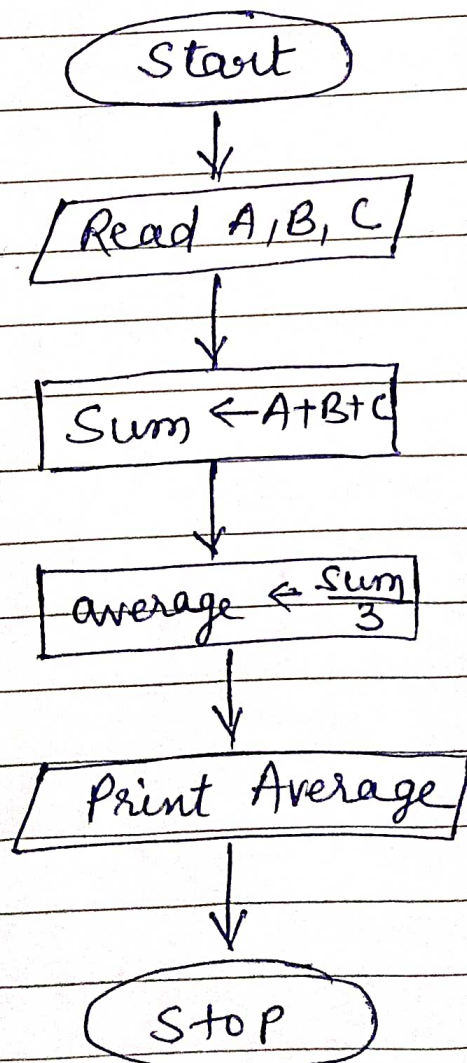 Start
Read A, B, C
Sum ← A+B+C
average ← sum/3
Print Average
Stop